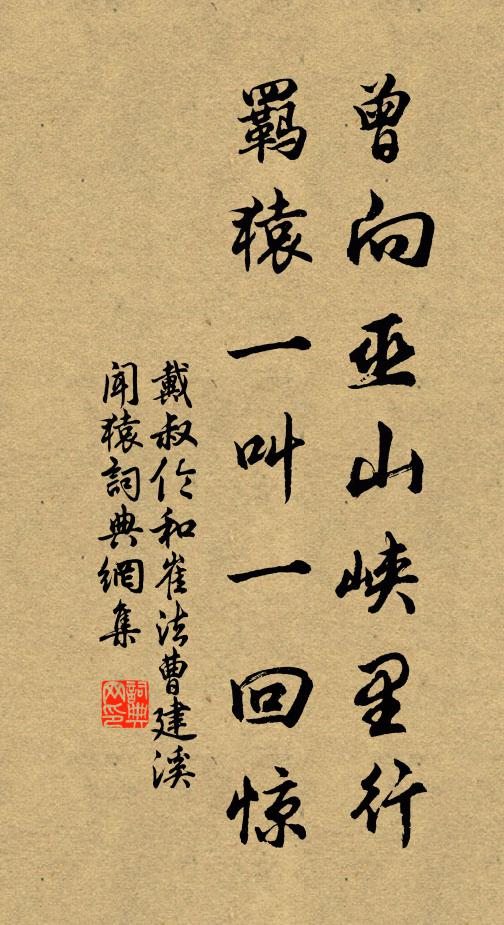 曾向巫山峡里行
羈猿一叫一回惊
戴叔伦和崔法曹建溪
闻猿詞典網集
詞典网印